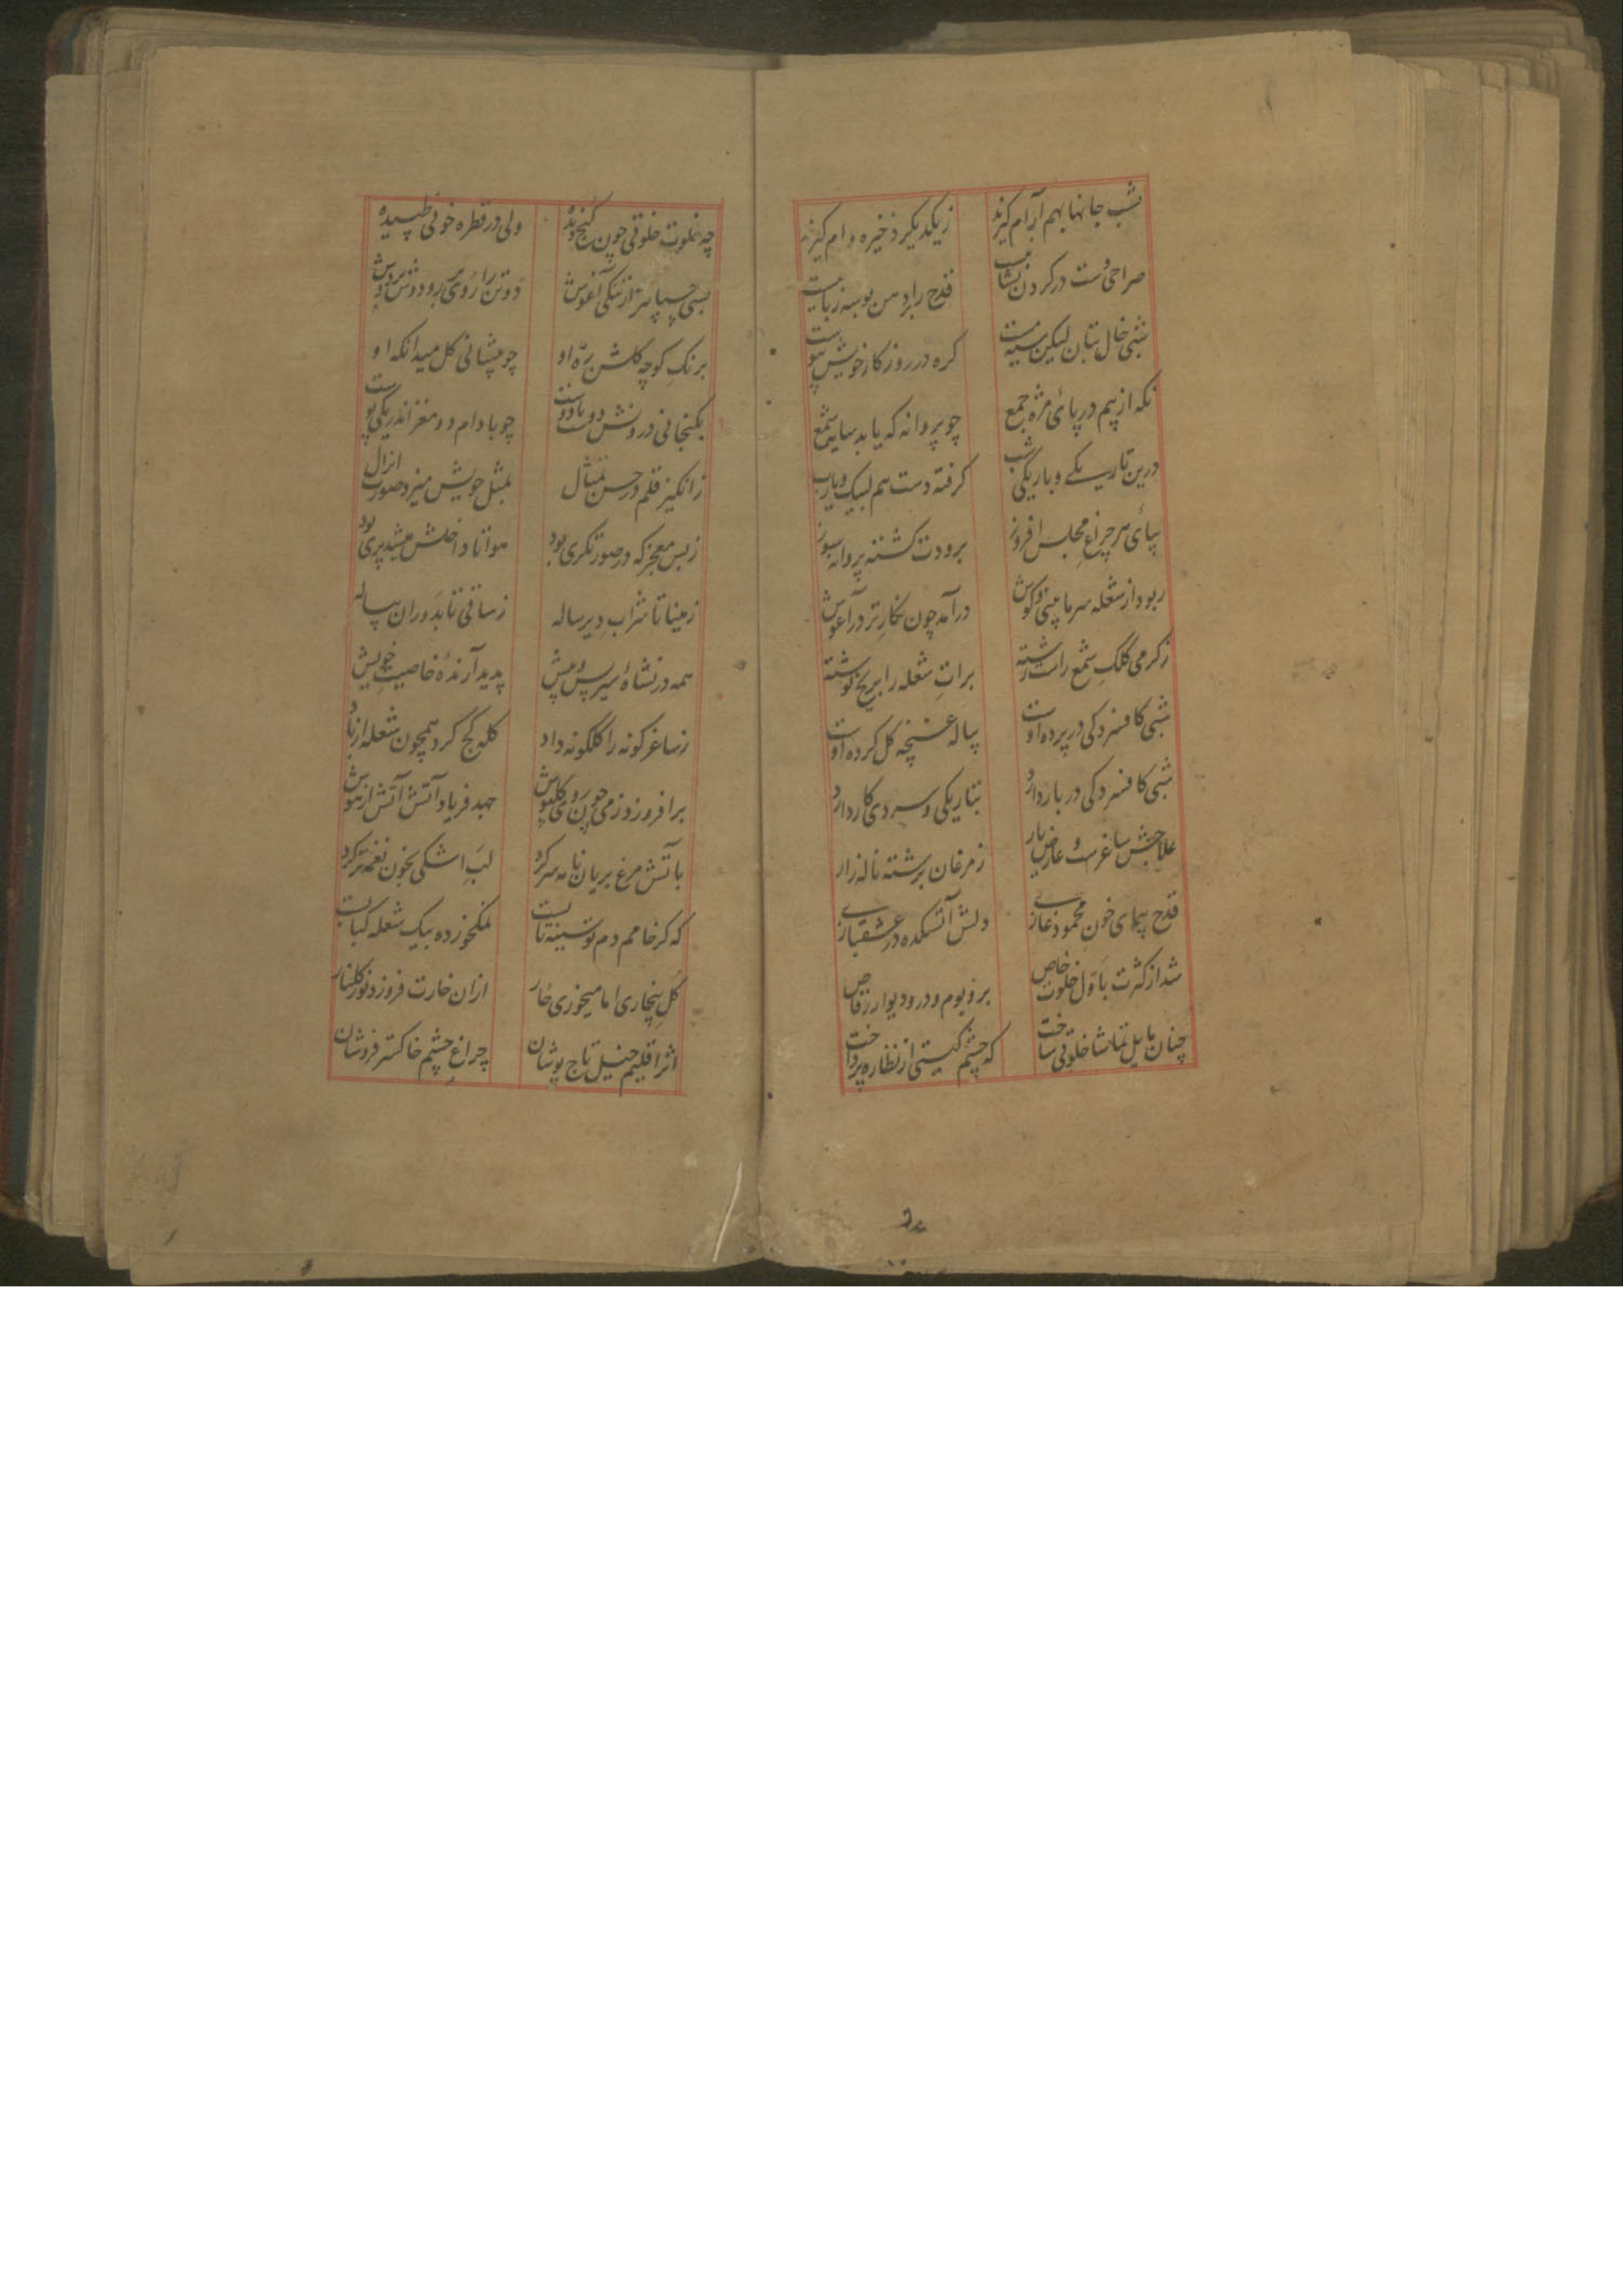 شب جانها بهم آرام گیرند زیکدیگر ذخیره وام گیرند
صراحی دست در گردن قدح را بر دهن بوسه
شبی خال بتان لیکن سیه مست گره در روزگار خویش
نگه از بیم در پای مژه جمع چو پروانه که یابد سایه شمع
درین تاریکی و باریکی شب گرفته دست هم لبیک و یارب
بپای هر چراغ مجلس افروز برودت گشته پروانه سوز
ربود از شعله سرما درآمد چون نگار تر در آغوش
ز گرمی کلک شمع برات شعله را بر یخ نوشته
شبی کافسردگی در پرده اوست پیاله غنچه گل کرده اوست
شبی کافسردگی در بار دارد بتاریکی و سردی کار دارد
علاجش ساغرست و عارض یار ز مرغان برشته ناله زار
قدح پیمای خون محمود غازی دلش آتشکده در عشقبازی
شد از کثرت باول خلوت خاص بر و بوم و در و دیوار رقاص
چنان مایل تماشا خلوتی ساخت که چشم گیتی از نظاره پرداخت
چه خلوت خلوتی چون کنج دیده ولی در قطره خونی طپیده
بسی چسپان‌تر از تنگی آغوش دو تن را روی بر رو دوش بر دوش
برنگ کوچه گلشن ره او چو پیشانی گل میدانگه او
بگنجانی درونش دوست با دوست چو بادام دو مغز اندر یکی پوست
ز انگیز قلم در حسن تمثال بمثل خویش میزد صورت
ز بس معجز که در صورتگری بود هوا تا داخلش میشد پری بود
ز مینا تا شراب دیر ساله ز ساقی تا بدوران پیاله
همه در نشاه سیر پس و پیش پدید آرنده خاصیت خویش
ز ساغر گونه را گلگونه داد کله کج کرد همچون شعله از باد
برافروزد ز می چون روی گلپوش جهد فریاد آتش آتش از هوش
بآتش مرغ بریان نامه سر کرد لب اشکی بخون نغمه تر کرد
که گر خامم دم تو سینه تابست نمکخورده بیک شعله کبابست
گل بیخاری اما میخوری خار ازان خارت فروزد نور گلنار
اثر اقلیم خیل تاج پوشان چراغ چشم خاکستر فروشان